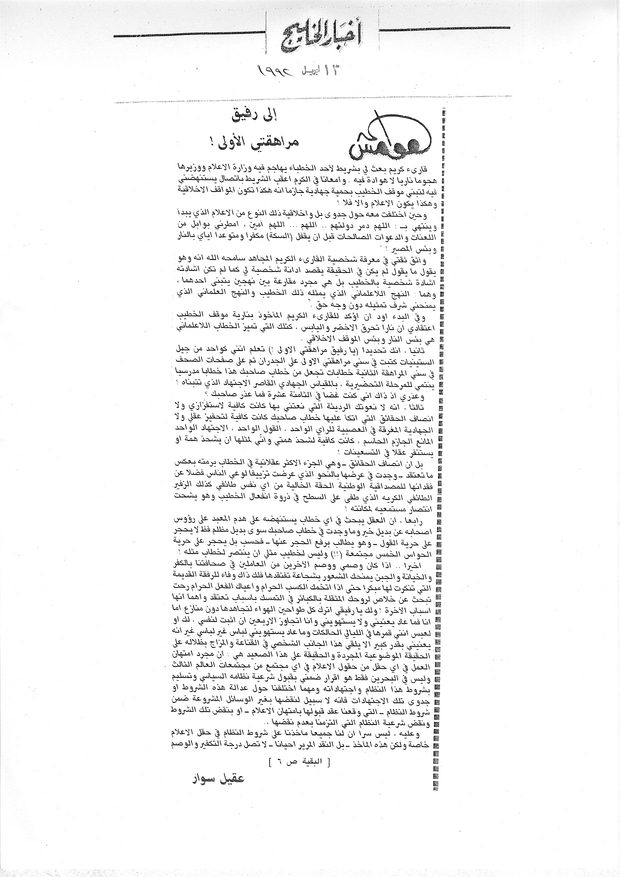 أخبار الخليج
١٣ ابريل ١٩٩٢
هوامش
إلى رفيق
مراهقتي الأولى !
قارىء كريم بعث لي بشريط لاحد الخطباء يهاجم فيه وزارة الاعلام ووزيرها
هجوما ناريا لا هوادة فيه . وامعانا في الكرم أعقب الشريط باتصال يستنهضني
فيه لتبني موقف الخطيب بحمية جهادية جازما انه هكذا تكون المواقف الاخلاقية
وهكذا يكون الاعلام والا فلا !
وحين اختلفت معه حول جدوى بل واخلاقية ذلك النوع من الاعلام الذي يبدأ
وينتهي بـ : اللهم دمر دولتهم .. اللهم ... اللهم امين ، امطرني بوابل من
اللعنات والدعوات الصالحات قبل ان يقفل (السكة) مكفرا ومتوعدا اياي بالنار
وبئس المصير !
واثق ثقتي في معرفة شخصية القارىء الكريم المجاهد سامحه الله انه وهو
يقول ما يقول لم يكن في الحقيقة يقصد ادانة شخصية لي كما لم تكن اشادته
اشادة شخصية بالخطيب بل هي مجرد مقارعة بين نهجين يتبنى احدهما ،
وهما : النهج اللاعلماني الذي يمثله ذلك الخطيب والنهج العلماني الذي
يمنحني شرف تمثيله دون وجه حق .
وفي البدء اود ان اؤكد للقارىء الكريم الماخوذ بنارية موقف الخطيب
اعتقادي ان نارا تحرق الاخضر واليابس ، كتلك التي تميز الخطاب اللاعلماني
هي بئس النار وبئس الموقف الاخلاقي .
ثانيا ، انك تحديدا (يا رفيق مراهقتي الاولى !) تعلم انني كواحد من جيل
الستينيات كتبت في سني مراهقتي الاولى على الجدران ثم على صفحات الصحف
في سني المراهقة الثانية خطابات تجعل من خطاب صاحبك هذا خطابا مدرسيا
ينتمي للمرحلة التحضيرية ، بالمقياس الجهادي القاصر الاجتهاد الذي تتبناه !
وعذري اذ ذاك اني كنت غضا في الثامنة عشرة فما عذر صاحبك ؟
ثالثا ، انه لا نعوتك الرديئة التي نعتني بها كانت كافية لاستفزازي ولا
انصاف الحقائق التي اتكأ عليها خطاب صاحبك كانت كافية لتحفيز عقلي ولا
الجهادية المغرقة في العصبية للرأي الواحد ، القول الواحد ، الاجتهاد الواحد
المانع الجازم الحاسم ، كانت كافية لشحذ همتي وأنّى لمثلها ان يشحذ همة او
يستنفر عقلا في التسعينات ؟
بل ان انصاف الحقائق ــ وهي الجزء الاكثر عقلانية في الخطاب برمته بعكس
ما تعتقد ــ وجدت في عرضها بالنحو الذي عرضت تزييفا لوعي الناس فضلا عن
فقدانها للمصداقية الوطنية الحقة الخالية من اي نفس طائفي كذلك الزفير
الطائفي الكريه الذي طفى على السطح في ذروة انفعال الخطيب وهو يشحت
انتصار مستمعيه لمكانته !
رابعا ، ان العقل يبحث في اي خطاب يستنهضه على هدم المعبد على رؤوس
اصحابه عن بديل خير وما وجدت في خطاب صاحبك سوى بديل مظلم فظ لا يحجر
على حرية القول ــ وهو يطالب برفع الحجر عنها ــ فحسب بل يحجر على حرية
الحواس الخمس مجتمعة (!!) وليس لخطيب مثلي ان ينتصر لخطاب مثله !
اخيرا .. اذا كان وصمي ووصم الآخرين من العاملين في صحافتنا بالكفر
والخيانة والجبن يمنحك الشعور بشجاعة تفتقدها فلك ذاك وفاء للرفقة القديمة
التي تنكرت لها مبكرا حتى اذا اتخمك الكسب الحرام واعياك الفعل الحرام رحت
تبحث عن خلاص لروحك المثقلة بالكبائر في التمسك باسباب تعتقد واهما انها
اسباب الآخرة ! ولك يا رفيقي اترك كل طواحين الهواء لتجاهدها دون منازع اما
انا فما عاد يعنيني ولا يستهويني وانا اتجاوز الاربعين ان اثبت لنفسي ، لك او
لعبس انني قمرها في الليالي الحالكات وما عاد يستهويني لباس غير لباسي غير انه
يعنيني بقدر كبير الا يلقي هذا الجانب الشخصي في القناعة والمزاج بظلاله على
الحقيقة الموضوعية المجردة والحقيقة على هذا الصعيد هي : ان مجرد امتهان
العمل في اي حقل من حقول الاعلام في اي مجتمع من مجتمعات العالم الثالث .
وليس في البحرين فقط هو اقرار ضمني بقبول شرعية نظامه السياسي وتسليم
بشروط هذا النظام واجتهاداته ومهما اختلفنا حول عدالة هذه الشروط او
جدوى تلك الاجتهادات فانه لا سبيل لنقضها بغير الوسائل المشروعة ضمن
شروط النظام ــ التي وقعنا عقد قبولها بامتهان الاعلام ــ او بنقض تلك الشروط
ونقض شرعية النظام التي التزمنا بعدم نقضها ..
وعليه ، ليس سرا ان لنا جميعا مآخذنا على شروط النظام في حقل الاعلام
خاصة ولكن هذه المآخذ ــ بل النقد المرير احيانا ــ لا تصل درجة التكفير والوصم
[ البقية ص ٦ ]
عقيل سوار